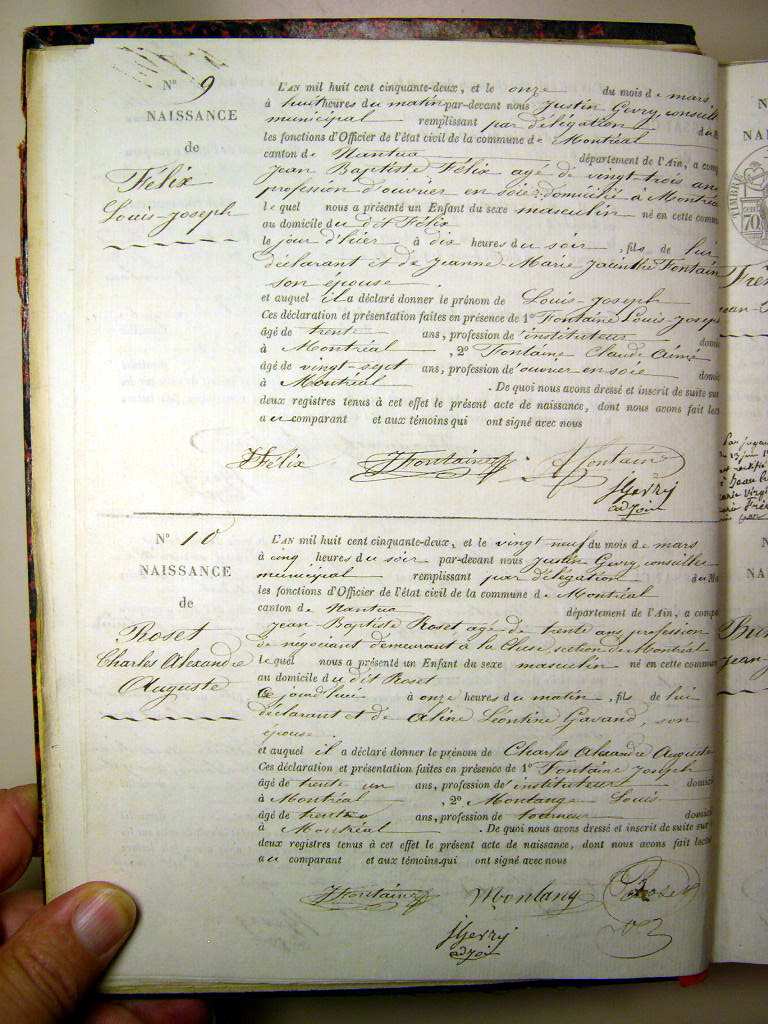 N° 9
NAISSANCE
de
Félix
Louis-Joseph
L'AN mil huit cent cinquante-deux, et le onze du mois de mars
à huit heures du matin par-devant nous Justin Gevry, conseill
municipal remplissant par délégation du M
les fonctions d'Officier de l'état civil de la commune de Montréal
canton de Nantua département de l'Ain, a comp
Jean Baptiste Félix agé de vingt trois ans
profession d'ouvrier en soie domicilié à Montréal
lequel nous a présenté un Enfant du sexe masculin né en cette commu
au domicile du dit Félix
le jour d'hier à dix heures du soir, fils de lui
déclarant et de Jeanne-Marie Jacinthe Fontain
son épouse.
et auquel il a déclaré donner le prénom de Louis-Joseph
Ces déclaration et présentation faites en présence de 1° Fontaine Louis-Joseph
âgé de trente ans, profession d'instituteur domic
à Montréal, 2° Fontaine Claude Aimé
âgé de vingt-sept ans, profession d'ouvrier en soie domic
à Montréal. De quoi nous avons dressé et inscrit de suite sur
deux registres tenus à cet effet le présent acte de naissance, dont nous avons fait lect
au comparant et aux témoins qui ont signé avec nous
JFélix JFontaine Fontaine
JGevry
adjoint
N° 10
NAISSANCE
de
Roset
Charles Alexandre
Auguste
L'AN mil huit cent cinquante-deux, et le vingt neuf du mois de mars
à cinq heures du soir par-devant nous Justin Gevry, conseiller
municipal remplissant par délégation du Ma
les fonctions d'Officier de l'état civil de la commune de Montréal
canton de Nantua département de l'Ain, a compa
Jean-Baptiste Roset agé de trente ans profession
de négociant demeurant à la Cluse, section de Montréal
Lequel nous a présenté un Enfant du sexe masculin né en cette commun
au domicile du dit Roset
Ce jourd'hui à onze heures du matin, fils de lui
déclarant et de Aline Léontine Gavand, son
épouse.
et auquel il a déclaré donner le prénom de Charles Alexandre Auguste
Ces déclaration et présentation faites en présence de 1° Fontaine Joseph
âgé de trente un ans, profession d'instituteur domic
à Montréal, 2° Montange Louis
âgé de trente ans, profession de tourneur domicil
à Montréal. De quoi nous avons dressé et inscrit de suite sur
deux registres tenus à cet effet le présent acte de naissance, dont nous avons fait lectu
au comparant et aux témoins qui ont signé avec nous
JFontaine Montang Roset
JGevry
adjoint
TIMBRE
70